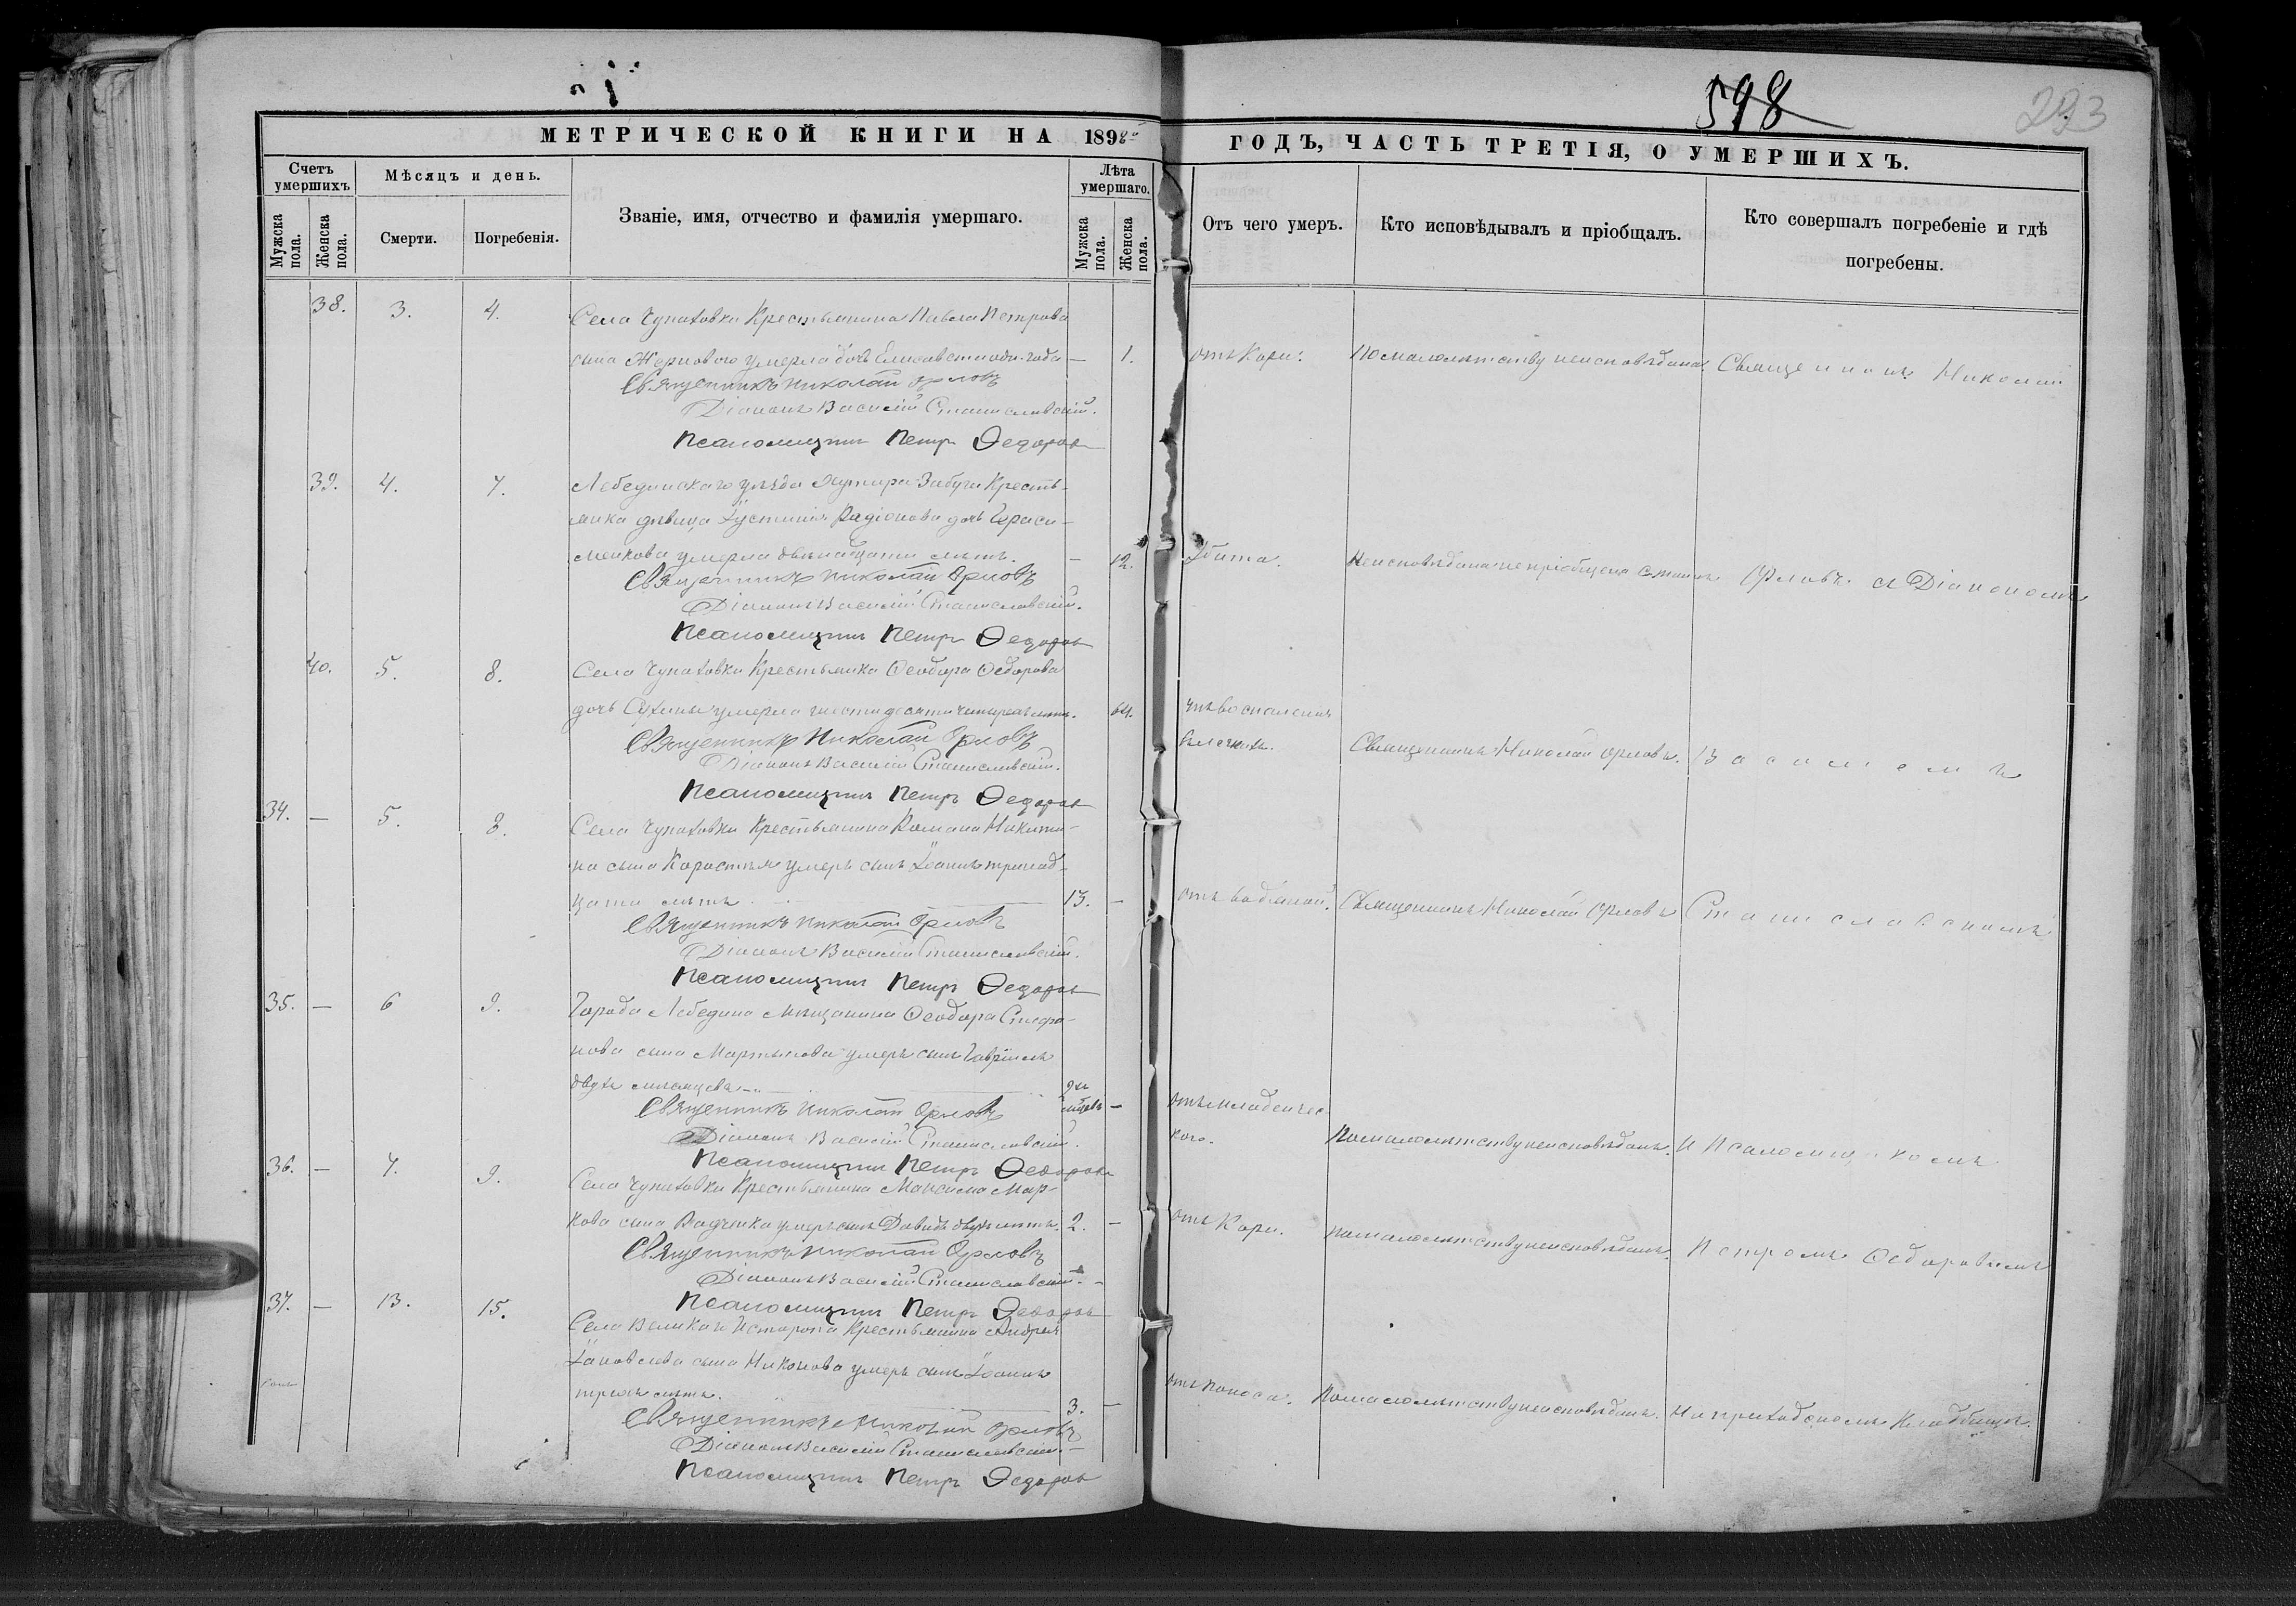 598
293
МЕТРИЧЕСКОЙ КНИГИ НА 1898й
ГОДЪ, ЧАСТЬ ТРЕТІЯ, О УМЕРШИХЪ.
Счетъ умершихъ
Мѣсяцъ и день.
Званіе, имя, отчество и фамилія умершаго.
Лѣта умершаго.
Мужска пола.
Женска пола.
Смерти.
Погребенія.
Мужска пола.
Женска пола.
Отъ чего умеръ.
Кто исповѣдывалъ и пріобщалъ.
Кто совершалъ погребеніе и гдѣ
погребены.
38. 3. 4. Села Чупаховки Крестьянина Павла Петрова
сына Жернового умерла дочь Елисавета одн. года — 1. отъ Кори. По малолѣтству неисповѣдана. Священникъ Николай
Священникъ Николай Орловъ
Діаконъ Василій Станиславскій.
Псаломщикъ Петръ Федоровъ
39. 4. 7. Лебединскаго уѣзда хутора Забуги Кресть-
янка дѣвица Іустинія Радіонова дочь Гераси-
менкова умерла двѣнадцати лѣтъ. — 12. Убита. Неисповѣдана и непріобщена Орловъ. съ Діакономъ
Священникъ Николай Орловъ
Діаконъ Василій Станиславскій.
Псаломщикъ Петръ Федоровъ
40. 5. 8. Села Чупаховки Крестьянка Ѳеодора Ѳедорова
дочь умерла шестидесяти четырехъ лѣтъ. 64. воспаления
Священникъ Николай Орловъ. Василіемъ
Священникъ Николай Орловъ
Діаконъ Василій Станиславскій.
Псаломщикъ Петръ Федоровъ
34. — 5. 8. Села Чупаховки Крестьянина Романа Никити-
на сына умеръ сынъ Іоаннъ тринад-
цати лѣтъ 13. — отъ водяной. Священникъ Николай Орловъ Станиславскимъ
Священникъ Николай Орловъ
Діаконъ Василій Станиславскій.
Псаломщикъ Петръ Федоровъ
35. — 6 9. Города Лебедина мѣщанина Ѳеодора Стефа-
нова сына Мартынова умеръ сынъ Гавріилъ
двухъ мѣсяцевъ — отъ младенчес-
кого. По малолѣтству неисповѣданъ. и Псаломщикомъ
Священникъ Николай Орловъ
Діаконъ Василій Станиславскій.
Псаломщикъ Петръ Федоровъ
36. — 7. 9. Села Чупаховки Крестьянина Максима Мар-
кова сына Радченка умеръ сынъ Давидъ двухъ лѣтъ. 2. — отъ Кори. По малолѣтству неисповѣданъ. Петромъ Ѳедоровымъ
Священникъ Николай Орловъ
Діаконъ Василій Станиславскій.
Псаломщикъ Петръ Федоровъ
37. — 13. 15. Села Великаго Истаропа Крестьянина Андрея
Іаковлева сына Никонова умеръ сынъ Іоаннъ
трехъ лѣтъ. 3. — отъ поноса. По малолѣтству неисповѣданъ. На приходскомъ Кладбищѣ.
Священникъ Николай Орловъ
Діаконъ Василій Станиславскій.
Псаломщикъ Петръ Федоровъ